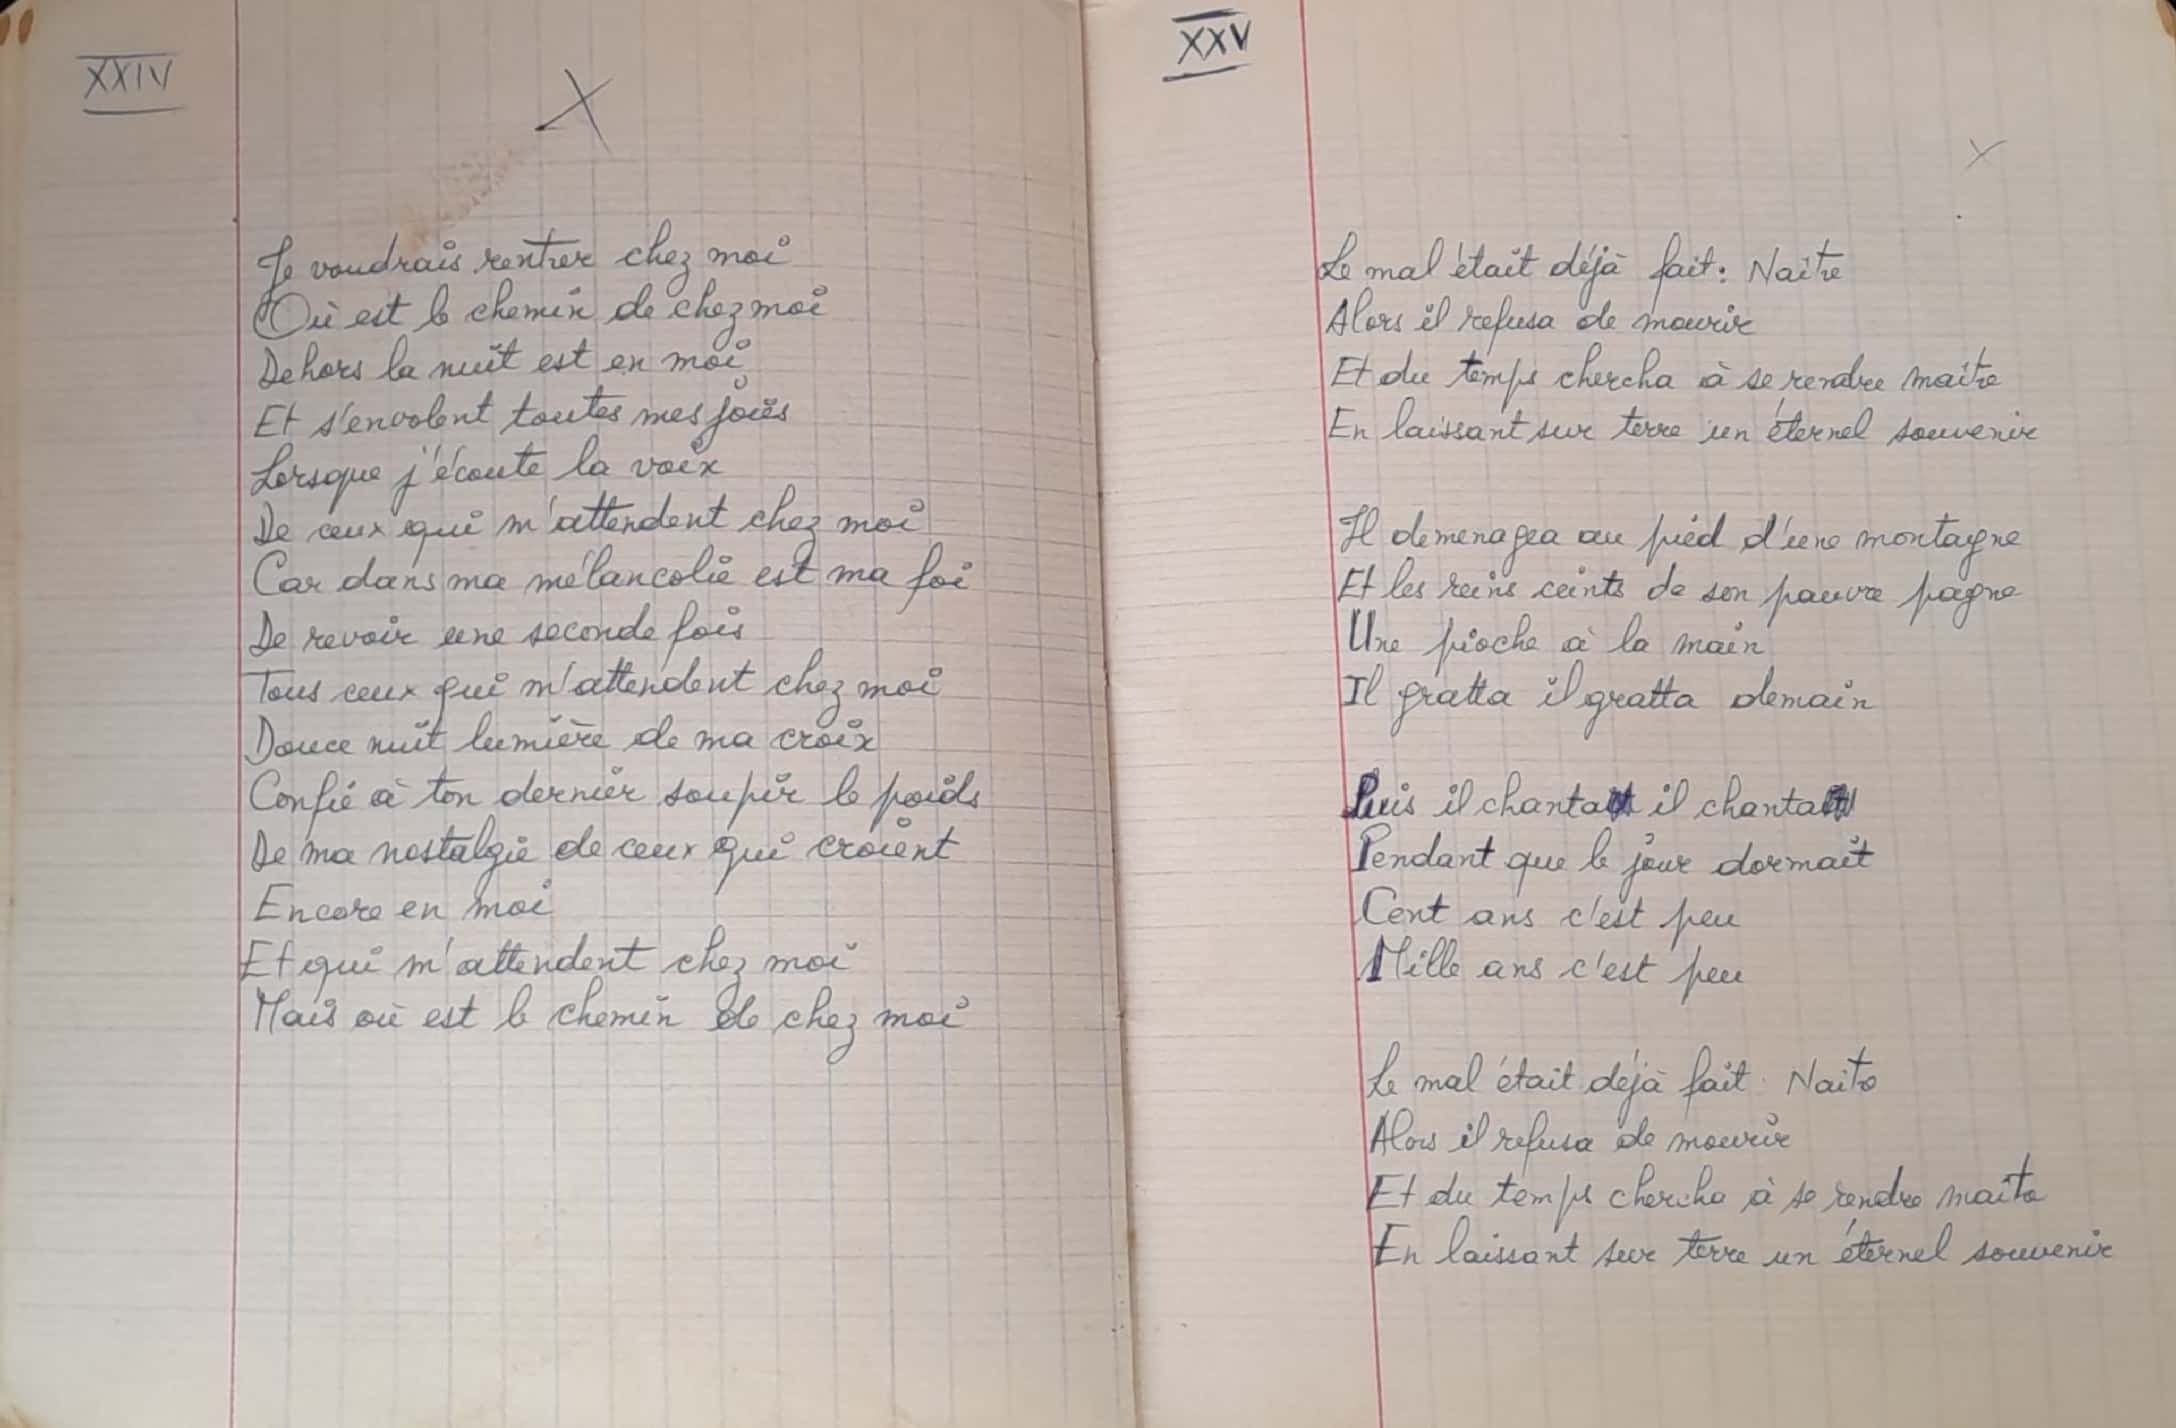 XXIV
X
Je voudrais rentrer chez moi
Où est le chemin de chez moi
Dehors la nuit est en moi
Et s'envolent toutes mes joies
Lorsque j'écoute la voix
De ceux qui m'attendent chez moi
Car dans ma mélancolie est ma foi
De revoir une seconde fois
Tous ceux qui m'attendent chez moi
Douce nuit lumière de ma croix
Confie à ton dernier soupir le poids
De ma nostalgie de ceux qui croient
Encore en moi
Et qui m'attendent chez moi
Mais où est le chemin de chez moi
XXV
X
Le mal était déjà fait : Naître
Alors il refusa de mourir
Et du temps chercha à se rendre maître
En laissant sur terre un éternel souvenir
Il demenagea au pied d'une montagne
Et les reins ceints de son pauvre pagne
Une pioche à la main
Il gratta il gratta demain
Puis il chanta il chanta
Pendant que le jour dormait
Cent ans c'est peu
Mille ans c'est peu
Le mal était déjà fait. Naître
Alors il refusa de mourir
Et du temps chercha à se rendre maître
En laissant sur terre un éternel souvenir